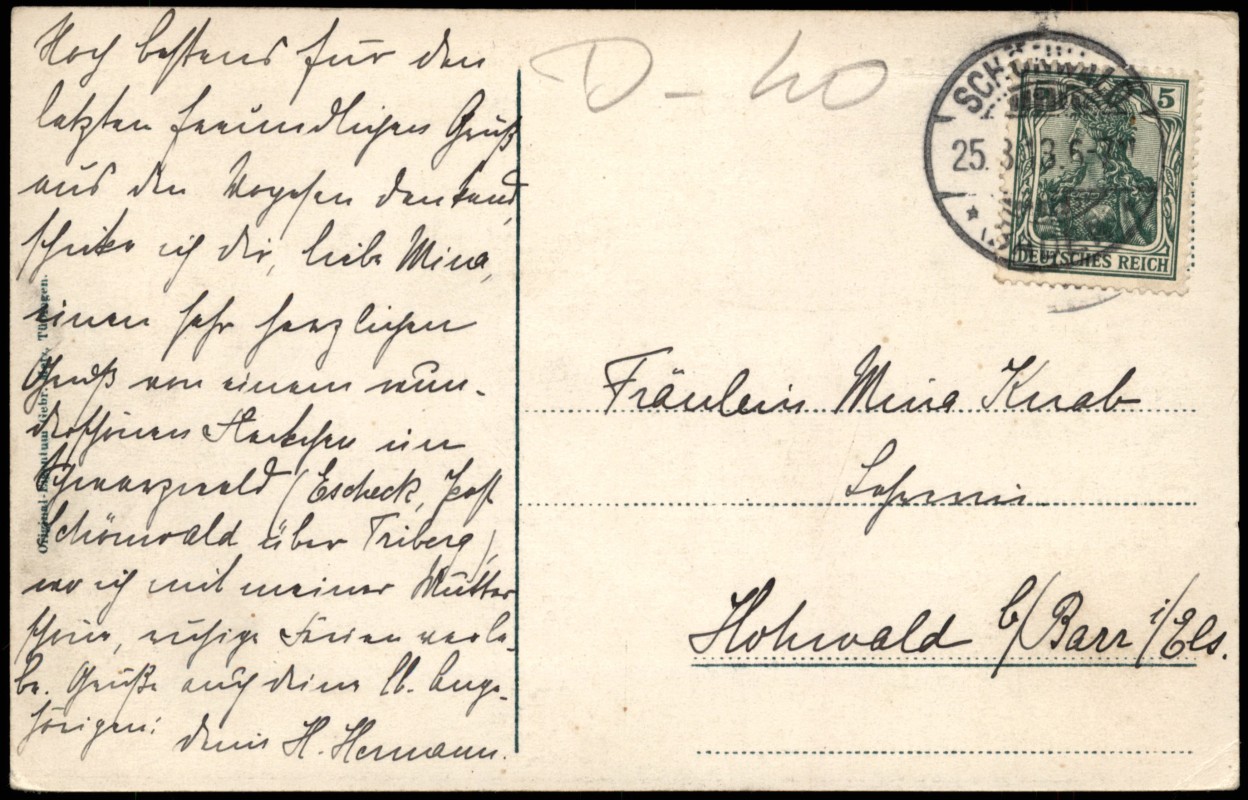 Noch bestens für den
letzten freundlichen Gruß
aus den Vogesen dankend,
schicke ich dir, liebe Mina,
einen sehr herzlichen
Gruß von einem wun-
derschönen Fleckchen im
Schwarzwald (Escheck, Post
Schönwald über Triberg),
wo ich mit meiner Mutter
schöne, ruhige Ferien verle-
be. Grüße auch deine lb. Ange-
hörigen!
dein H. Hermann.
Original-Eigentum Gebr. Metz, Tübingen.
D - 40
SCHÖNWALD
25. 8. 13. 6-7
5
DEUTSCHES REICH
Fräulein Mina Knab
Lehrerin
Hohwald b/Barr i/Els.